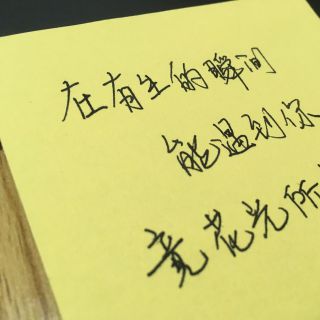 在有生的瞬间
能遇到你
竟花光所